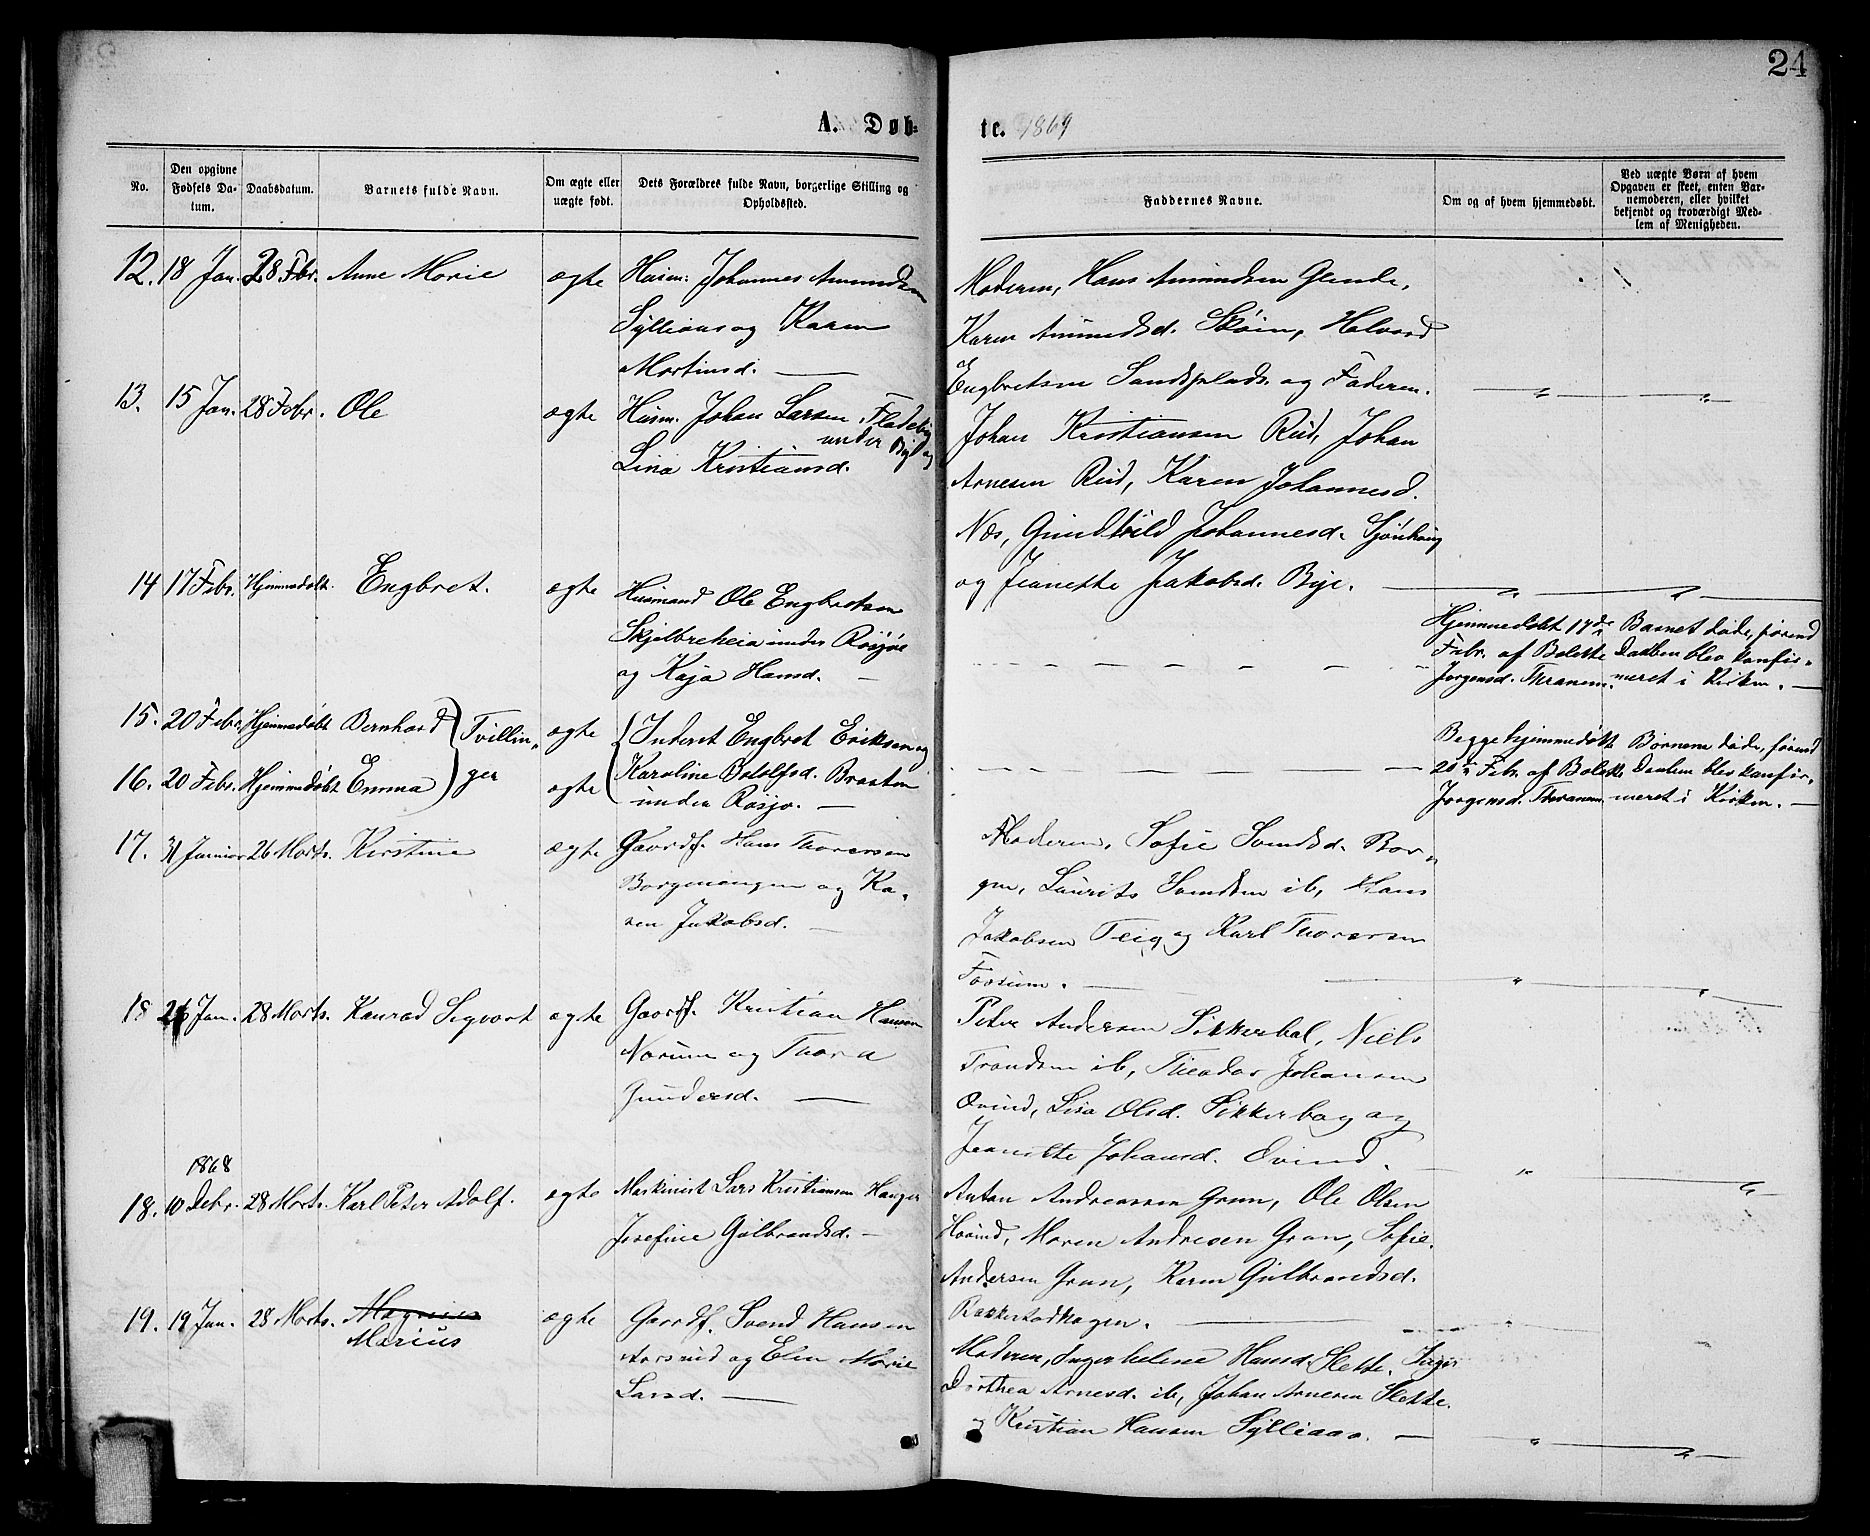 24
A. Døb-
te. 1869
No.
Den opgivne Fødsels Da-tum.
Daabsdatum.
Barnets fulde Navn.
Om ægte eller uægte født.
Dets Forældres fulde Navn, borgerlige Stilling og Opholdssted.
Faddernes Navne.
Om og af hvem hjemmedøbt.
Ved uægte Børn af hvem Opgaven er skeet, enten Bar-nemoderen, eller hvilket bekjendt og troværdigt Med-lem af Menigheden.
12. 18 Jan. 28 Fbr. Anne Marie ægte Husm. Johannes Amundsen
Sylliaas og Karen
Martinsd. —
Moderen, Hans Amundsen Glende,
Karen Amundsd. Skøin, Halvord
Engbretsen Sandsplads. og Faderen. — „ — „ —
13. 15 Jan. 28 Febr. Ole ægte Husm. Johan Larsen, Fladeby
under og
Lina Kristiansd.
Johan Kristiansen Rud, Johan
Arnesen Rud, Karen Johannesd.
Næs, Gundhild Johannesd. Sjønhaug
og Jeanette Jakobsd. Bye. — „ — „ —
14 17 Febr. Hjemmedøbt. Engbret. ægte Husmand Ole Engbretsen
Skjølbreheia under Røsjøe
og Kaja Hansd. —
Hjemmedøbt 17de
Febr. af Bolette
Jørgensd. Thranem.
Barnet døde, førend
Daaben blev konfir-
meret i Kirken. —
15. 20 Febr. Hjemmedøbt Bernhard } Tvillin- ægte { Inderst Engbret Eriksen og
16. 20 Febr. Hjemmedøbt Emma } ger ægte { Karoline Botolfsd. Braaten
under Røsjø. —
Begge hjemmedøbt
20de Febr. af Bolette
Jørgensd. Thranem.
Børnene døde, førend
Daaben blev konfir-
meret i Kirken. —
17. 31 Januar 26 Marts. Kirstine ægte Gaardf. Hans Thoresen
Borgenengen og Ka-
ren Jakobsd. —
Moderen, Sofie Svendsd. Bor-
gen, Laurits Svendsen ib, Hans
Jakobsen Teig og Karl Thoresen
Fossum. — „ — „ —
18 26 Jan. 28 Marts. Konrad Sigvart ægte Gaardf. Kristian Hansen
Norum og Thora
Gundersd. —
Peter Andersen Sikkerbøl, Niels
Trondsen ib, Theodor Johansen
Øvind, Lisa Olsd. Sikkerbøl og
Jeanette Johansd. Øvind. — „ — „ —
1868
18. 10 Debr. 28 Marts. Karl Peter Adolf. ægte Maskinist Lars Kristiansen Hauger
Josefine Gulbrandsd. —
Anton Andreassen Gran, Ole Olsen
Hovind, Maren Andresen Gran, Sofie
Andersen Gran, Karen Gulbrandsd.
Rakkestadhagen. —
19. 19 Jan. 28 Marts. Magnius ægte Gaardf. Svend Hansen
Marius
Aarsrud og Elen Marie
Larsd. —
Moderen, Ingerhelene Hansd. Slette. Inger
Dorthea Arnesd. ib, Johan Arnesen Slette.
og Kristian Hansen Sylliaas. — „ — „ —